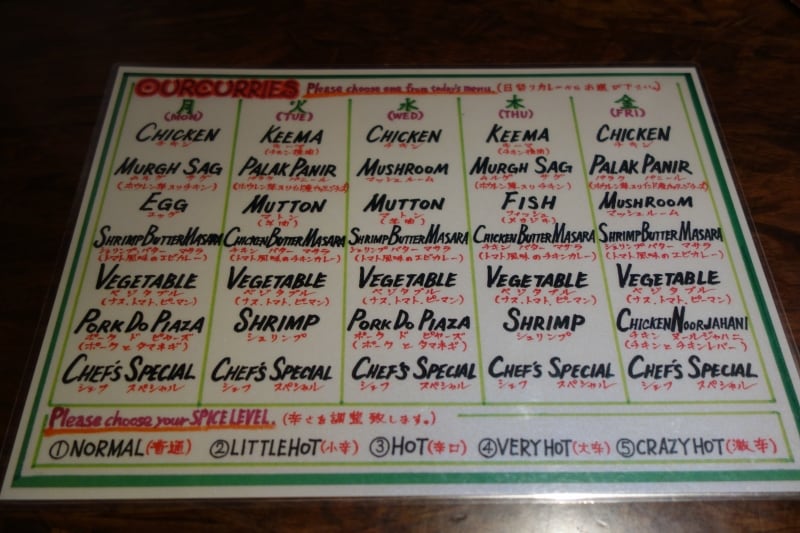 OUR CURRIES Please choose one from today's menu. (日替りカレーからお選び下さい。)
月 火 水 木 金
(MON) (TUE) (WED) (THU) (FRI)
CHICKEN KEEMA CHICKEN KEEMA CHICKEN
チキン キーマ チキン キーマ チキン
(チキン挽肉) (チキン挽肉)
MURGH SAG PALAK PANIR MUSHROOM MURGH SAG PALAK PANIR
ムルグ サグ パラク パニール マッシュルーム ムルグ サグ パラク パニール
(ホウレン草入りチキン) (ホウレン草入り (ホウレン草入りチキン) (ホウレン草入り
EGG MUTTON MUTTON FISH MUSHROOM
エッグ マトン マトン フィッシュ マッシュルーム
(羊肉) (羊肉) (メカジキ)
SHRIMP BUTTER MASARA CHICKEN BUTTER MASARA SHRIMP BUTTER MASARA CHICKEN BUTTER MASARA SHRIMP BUTTER MASARA
シュリンプ バター マサラ チキン バター マサラ シュリンプ バター マサラ チキン バター マサラ シュリンプ バター マサラ
(トマト風味のエビカレー) (トマト風味のチキンカレー) (トマト風味のエビカレー) (トマト風味のチキンカレー) (トマト風味のエビカレー)
VEGETABLE VEGETABLE VEGETABLE VEGETABLE VEGETABLE
ベジタブル ベジタブル ベジタブル ベジタブル ベジタブル
(ナス、トマト、ピーマン) (ナス、トマト、ピーマン) (ナス、トマト、ピーマン) (ナス、トマト、ピーマン) (ナス、トマト、ピーマン)
PORK DO PIAZA SHRIMP PORK DO PIAZA SHRIMP CHICKEN NOORJAHANI
ポーク ド ピヤーズ シュリンプ ポーク ド ピヤーズ シュリンプ チキン ヌールジャハニ
(ポークとタマネギ) (ポークとタマネギ) (チキンとチキンレバー)
CHEF'S SPECIAL CHEF'S SPECIAL CHEF'S SPECIAL CHEF'S SPECIAL CHEF'S SPECIAL
シェフ スペシャル シェフ スペシャル シェフ スペシャル シェフ スペシャル シェフ スペシャル
Please choose your SPICE LEVEL. (辛さを調整致します。)
①NORMAL(普通) ②LITTLE HOT(小辛) ③HOT(辛口) ④VERY HOT(大辛) ⑤CRAZY HOT(激辛)